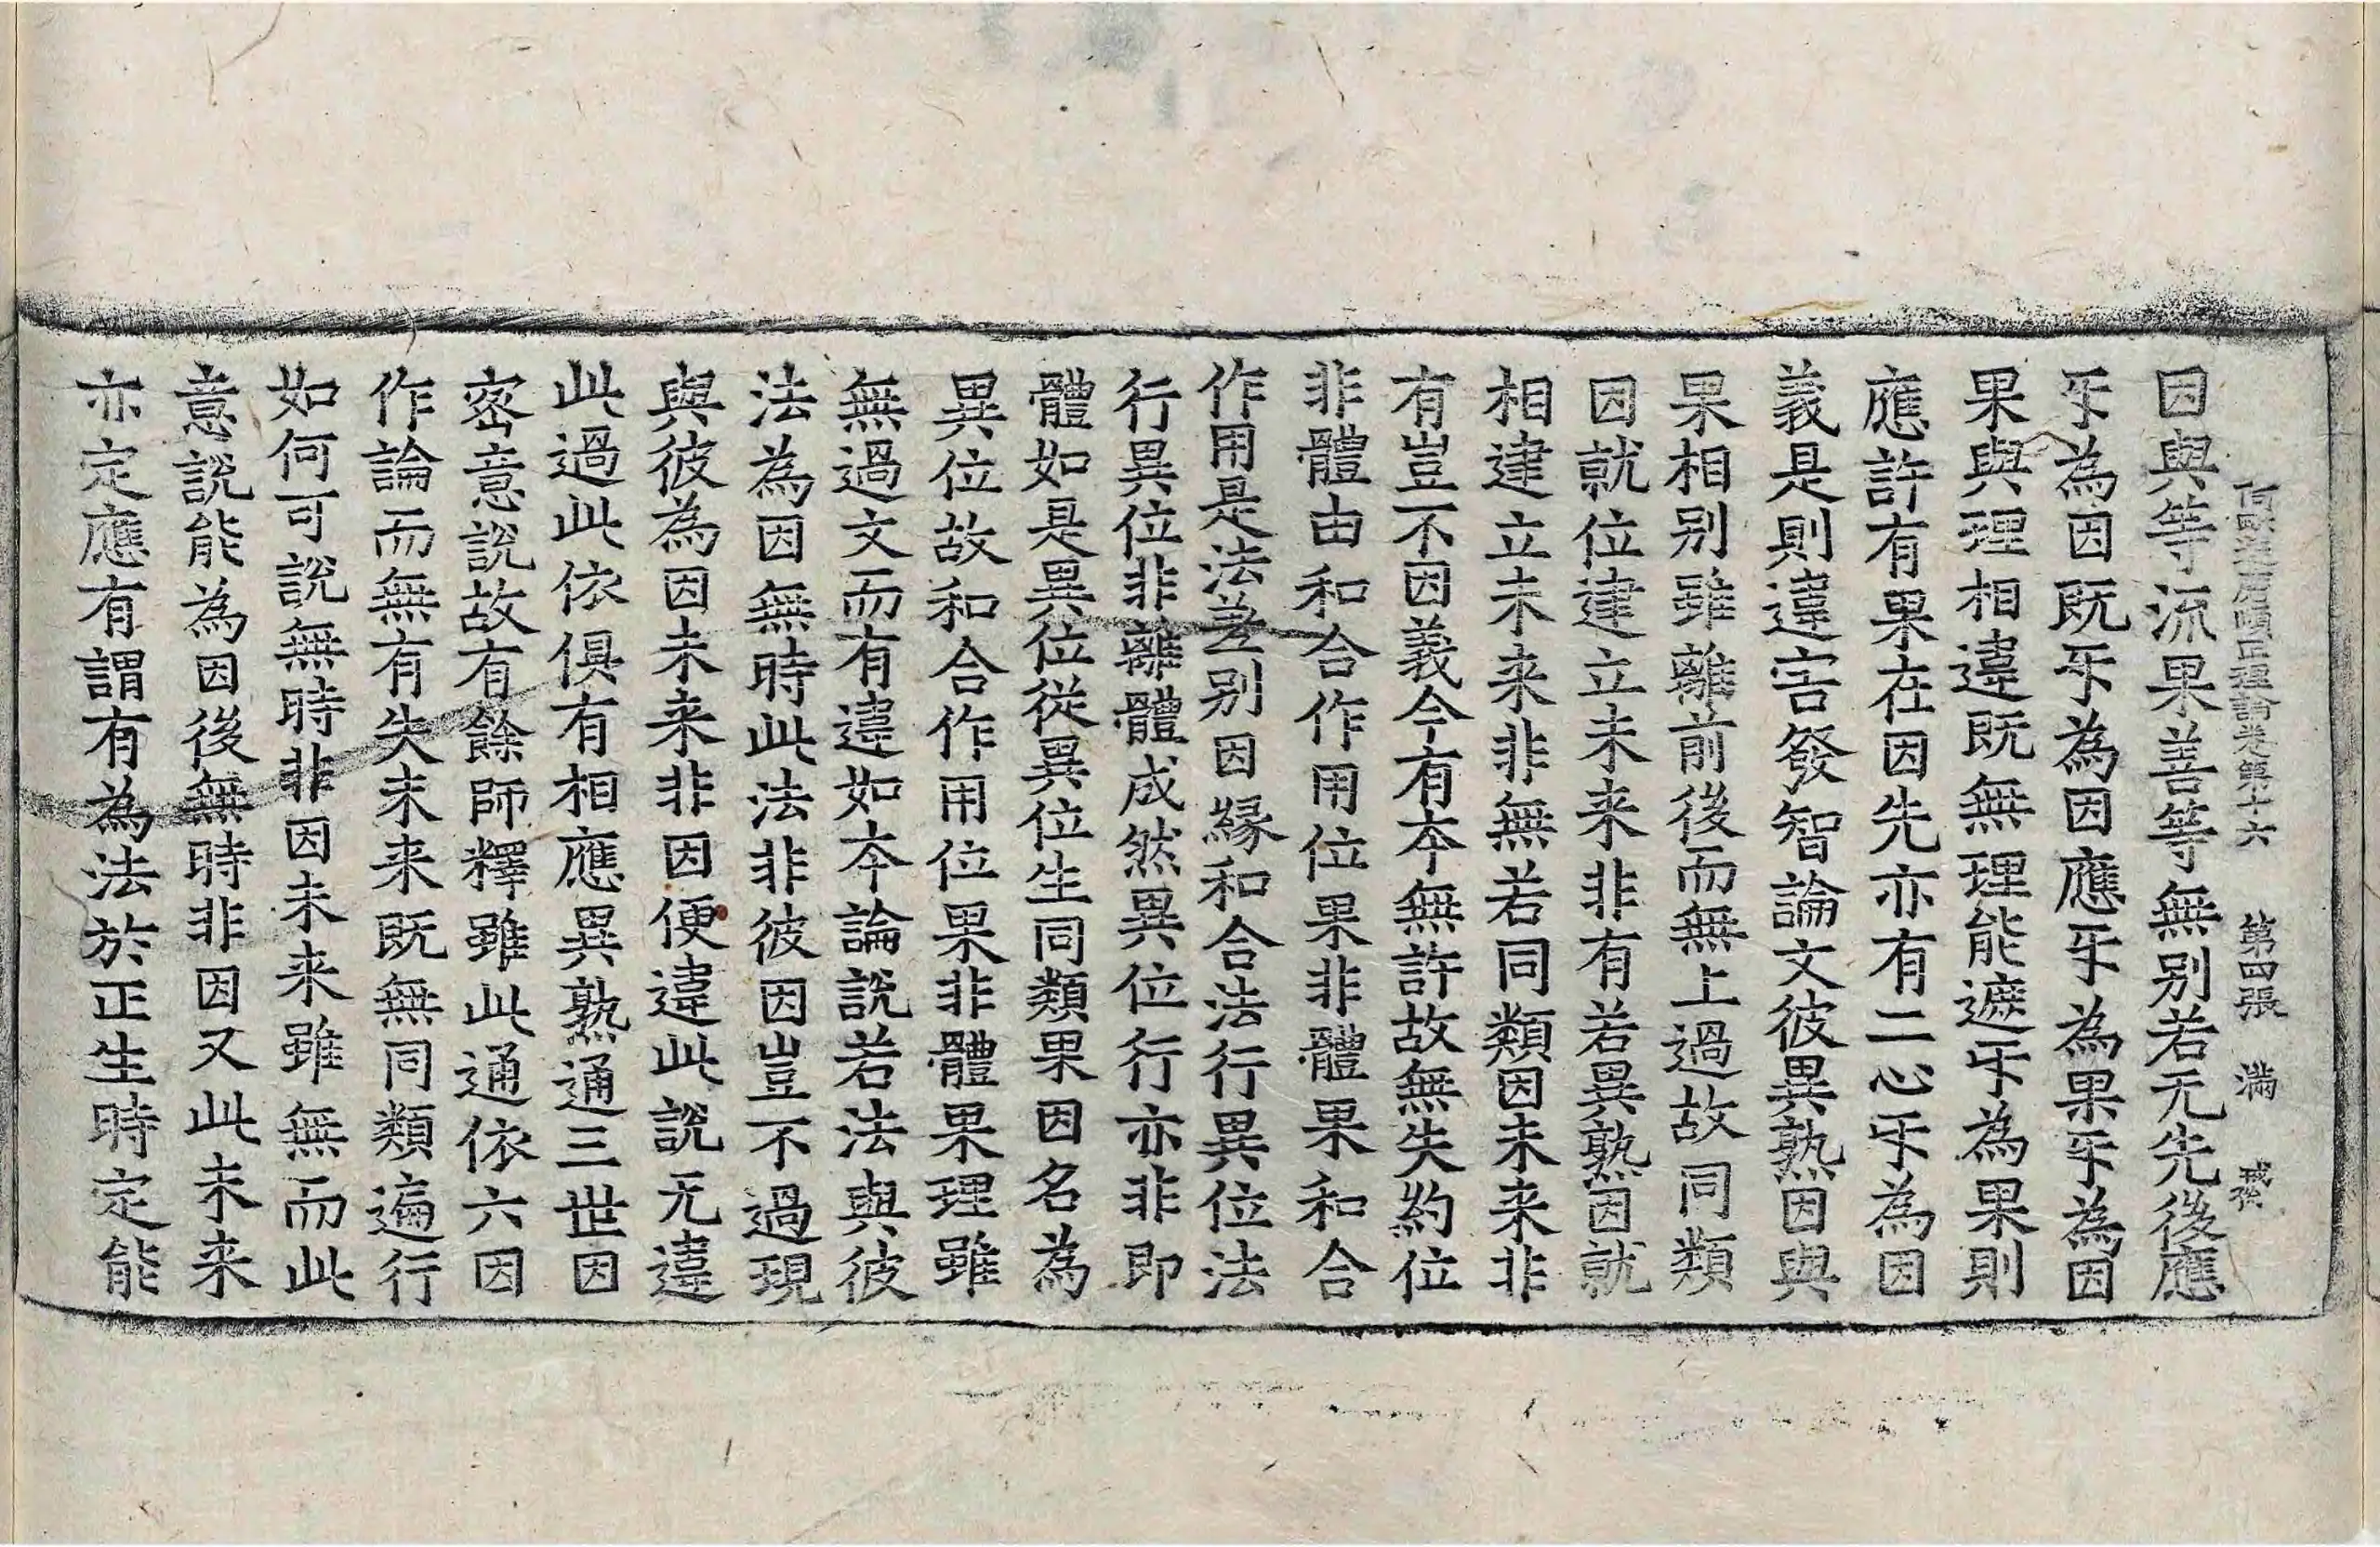 阿毗達磨順正理論卷第十六 第四張 滿
因與等流果善等無別若无先後應
乎為因既乎為因應乎為果乎為因
果與理相違既無理能遮乎為果則
應許有果在因先亦有二心乎為因
義是則違害發智論文彼異熟因與
果相別雖離前後而無上過故同類
因就位建立未来非有若異熟因就
相建立未来非無若同類因未来非
有豈不因義今有夲無許故無失約位
非體由和合作用位果非體果和合
作用是法差别因緣和合法行異位法
行異位非離體成然異位行亦非即
體如是異位從異位生同類果因名為
異位故和合作用位果非體果理雖
無過文而有違如夲論說若法與彼
法為因無時此法非彼因豈不過現
與彼為因未来非因便違此說无違
此過此依俱有相應異熟通三世因
密意說故有餘師釋雖此通依六因
作論而無有失未来既無同類遍行
如何可說無時非因未来雖無而此
意說能為因後無時非因又此未来
亦定應有謂有為法於正生時定能